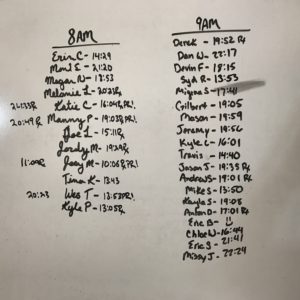 8AM
Erin C - 14:29
Mon? S - 21:20
Megan N - 13:53
Melanie L - 20:23Rx
21:33Rx Katie C - 16:04Rx,PR!
20:49Rx Manny P - 19:03Rx,PR!
L - 15:11Rx
Jordy M - 19:29Rx
11:00Rx Joey M - 10:06Rx,PR!
Tina K - 13:43
20:23 Wes T - 13:53Rx,PR!
Kyle P - 13:05Rx
9AM
Derek - 19:52 Rx
Dan W - 22:17
Devin F - 18:15
Syd R - 13:53
Miguna S - 17:41
Gilbert - 19:05
Mason - 19:59
Jeremy - 19:56
Kyle L - 16:01
Travis - 14:40
Jason J - 19:39 Rx
Andrew S - 19:01 Rx
Mike S - 13:50
Kayla S - 19:08
Anton D - 17:01 Rx
Eric B -
Chloe W - 16:44
Eric J - 21:41
Missy J - 22:24